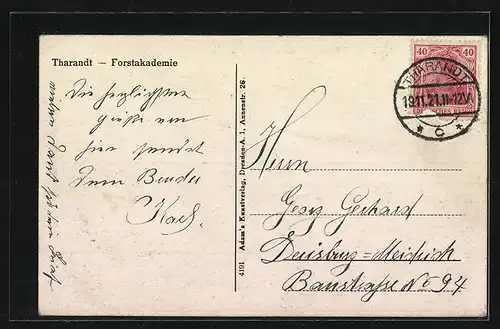 Tharandt — Forstakademie
Die herzlichsten
Grüße von
hier sendet
Dein Bruder
Karl.
vielen Dank für dein
4191 Adam's Kunstverlag, Dresden-A. 1, Annenstr. 26.
40 40
THARANDT
19.11.21.11-12V.
* C *
Herrn
Georg Gerhard
Duisburg=Meiderich
Baustraße No 94